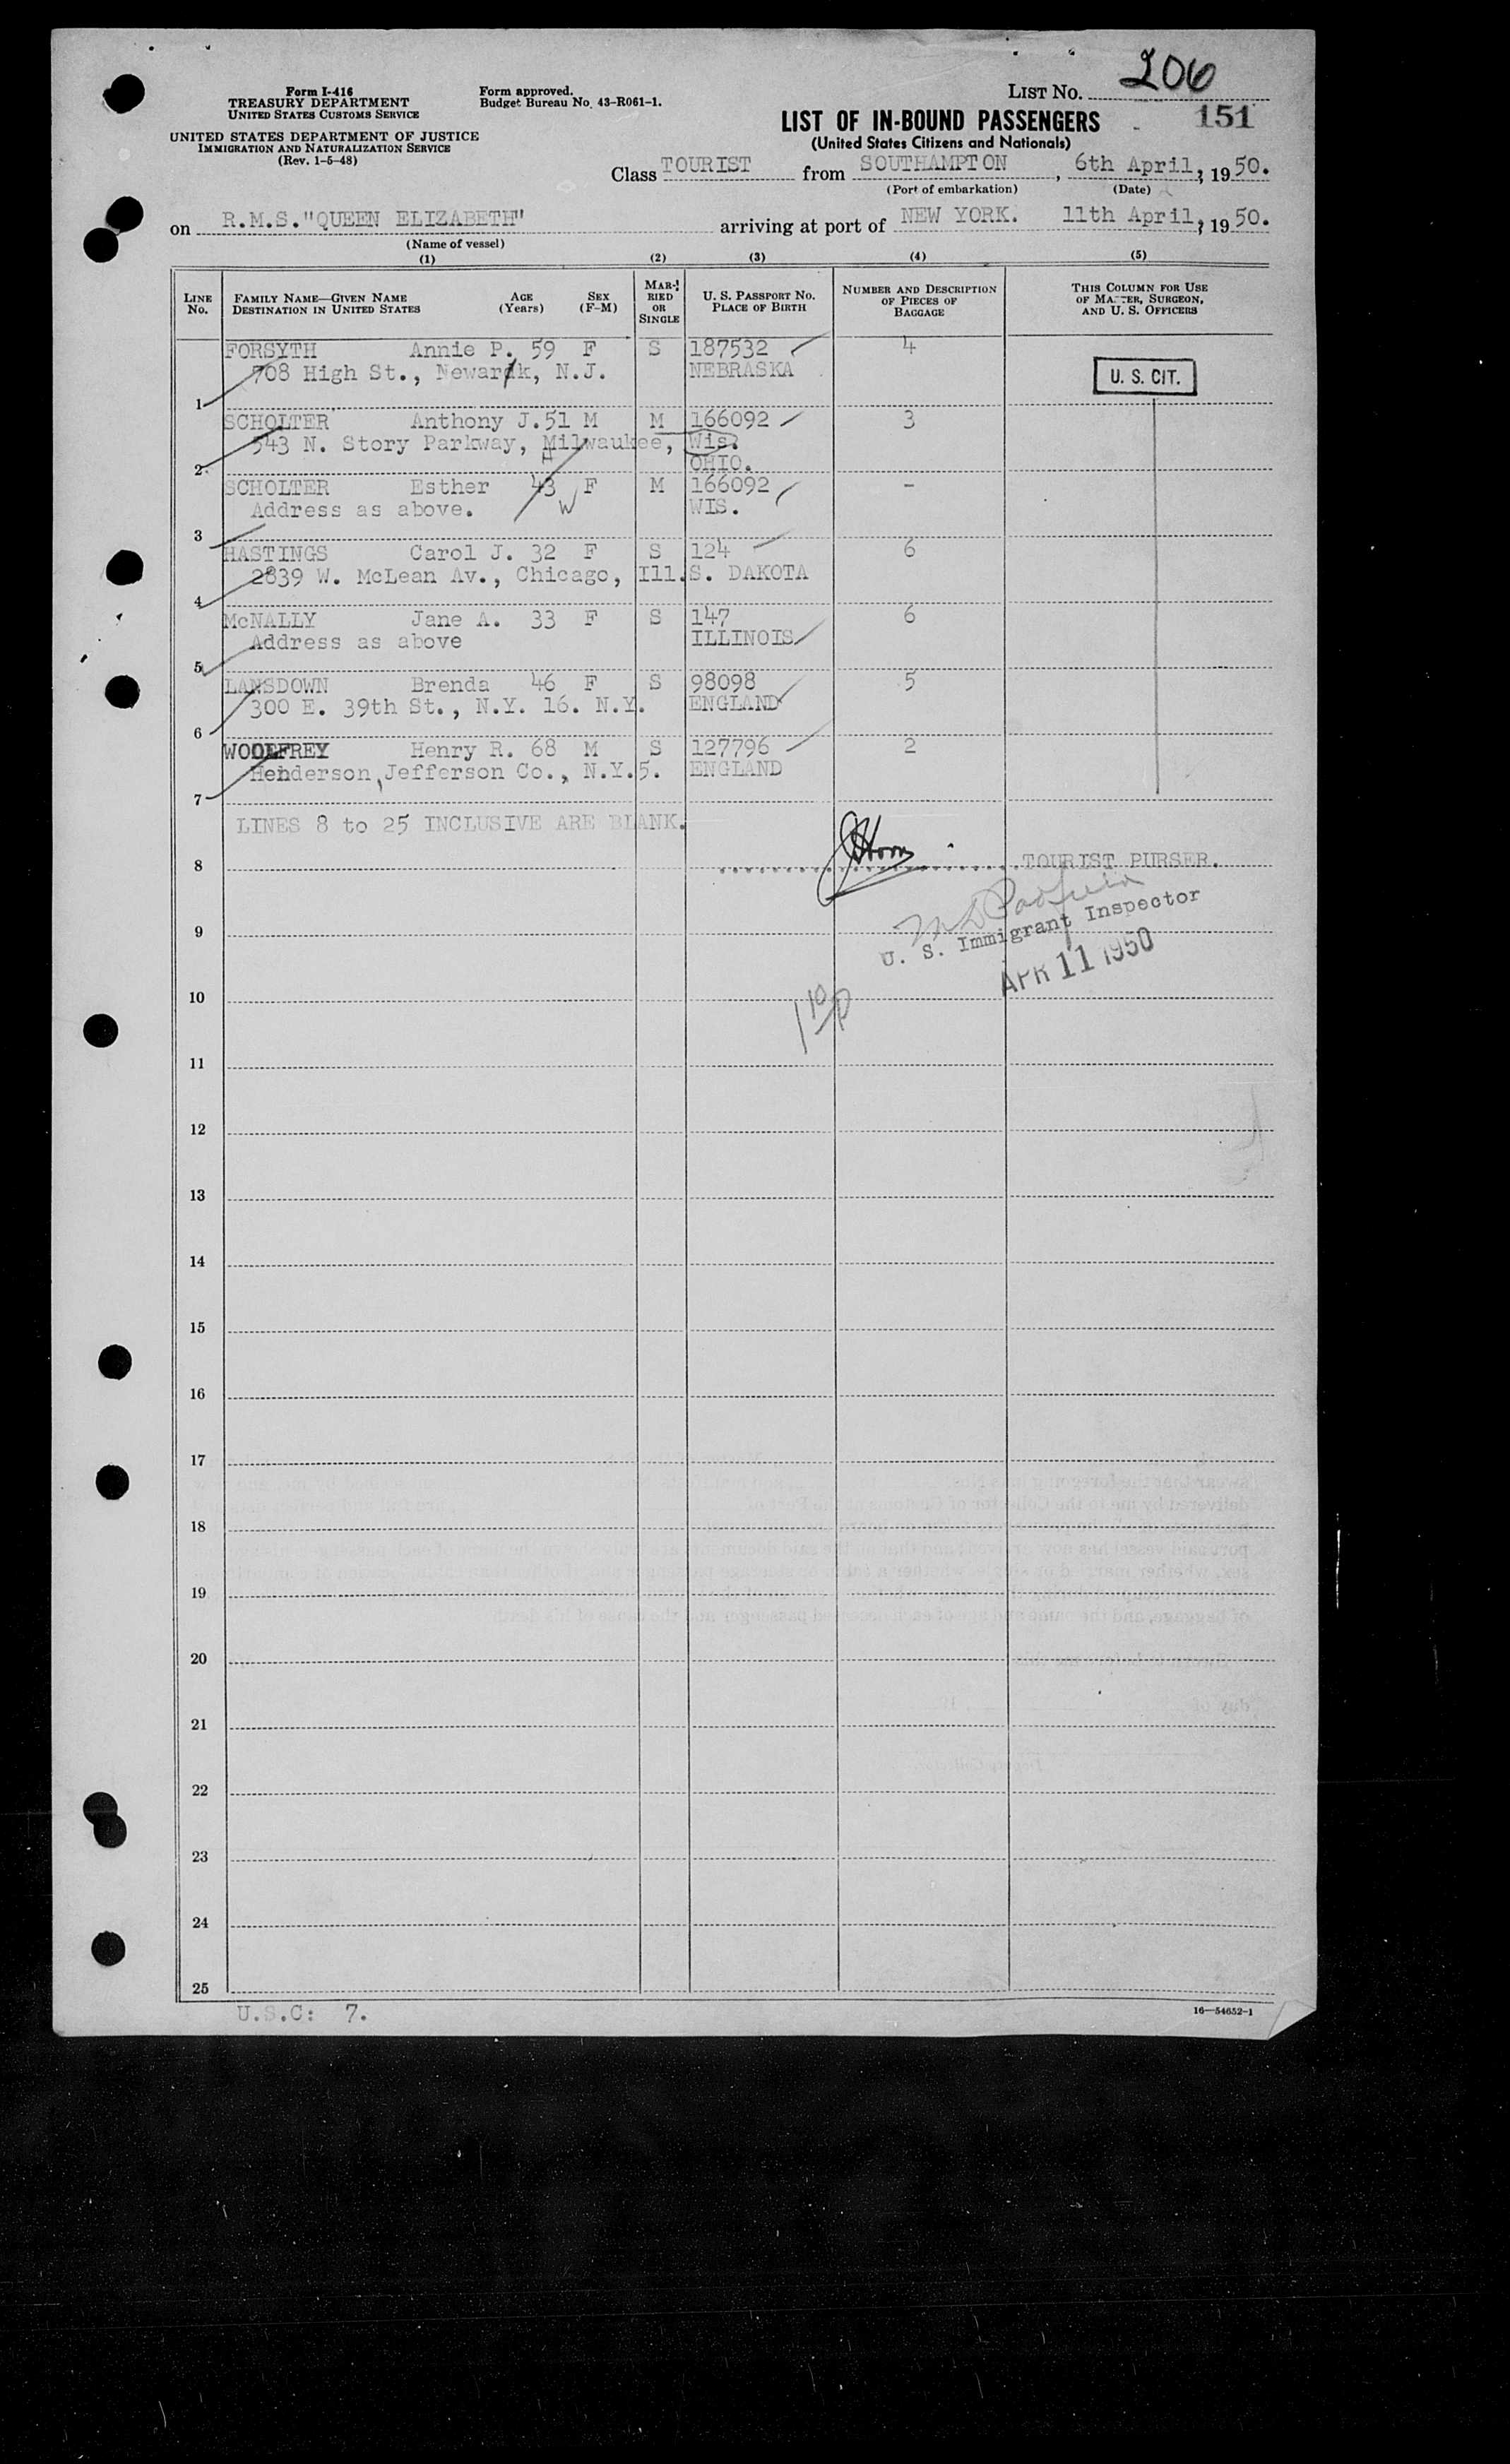 206
Form I-416
TREASURY DEPARTMENT
UNITED STATES CUSTOMS SERVICE
Form approved.
Budget Bureau No. 43-R061-1.
LIST NO.
151
UNITED STATES DEPARTMENT OF JUSTICE
IMMIGRATION AND NATURALIZATION SERVICE
(Rev. 1-5-48)
LIST OF IN-BOUND PASSENGERS
(United States Citizens and Nationals)
Class TOURIST from SOUTHAMPTON, 6th April, 19 50.
(Port of embarkation) (Date)
on R.M.S."QUEEN ELIZABETH" arriving at port of NEW YORK. 11th April, 19 50.
(Name of vessel)
(1) (2) (3) (4) (5)
LINE NO. FAMILY NAME—GIVEN NAME DESTINATION IN UNITED STATES AGE (Years) SEX (F-M) MARRIED OR SINGLE U. S. PASSPORT NO. PLACE OF BIRTH NUMBER AND DESCRIPTION OF PIECES OF BAGGAGE THIS COLUMN FOR USE OF MASTER, SURGEON, AND U. S. OFFICERS
FORSYTH Annie P. 59 F S 187532 4
708 High St., Newark, N.J. NEBRASKA U. S. CIT.
1
SCHOLTER Anthony J. 51 M M 166092 3
543 N. Story Parkway, Milwaukee, Wis.
2 OHIO.
SCHOLTER Esther 43 F M 166092 -
Address as above. W WIS.
3
HASTINGS Carol J. 32 F S 124 6
2839 W. McLean Av., Chicago, Ill. S. DAKOTA
4
McNALLY Jane A. 33 F S 147 6
Address as above ILLINOIS
5
LANSDOWN Brenda 46 F S 98098 5
300 E. 39th St., N.Y. 16. N.Y. ENGLAND
6
WOOLFREY Henry R. 68 M S 127796 2
Henderson, Jefferson Co., N.Y.5. ENGLAND
7
LINES 8 to 25 INCLUSIVE ARE BLANK.
8 TOURIST PURSER.
U. S. Immigrant Inspector
9
APR 11 1950
10
11
12
13
14
15
16
17
18
19
20
21
22
23
24
25
U.S.C: 7.
16—54652-1